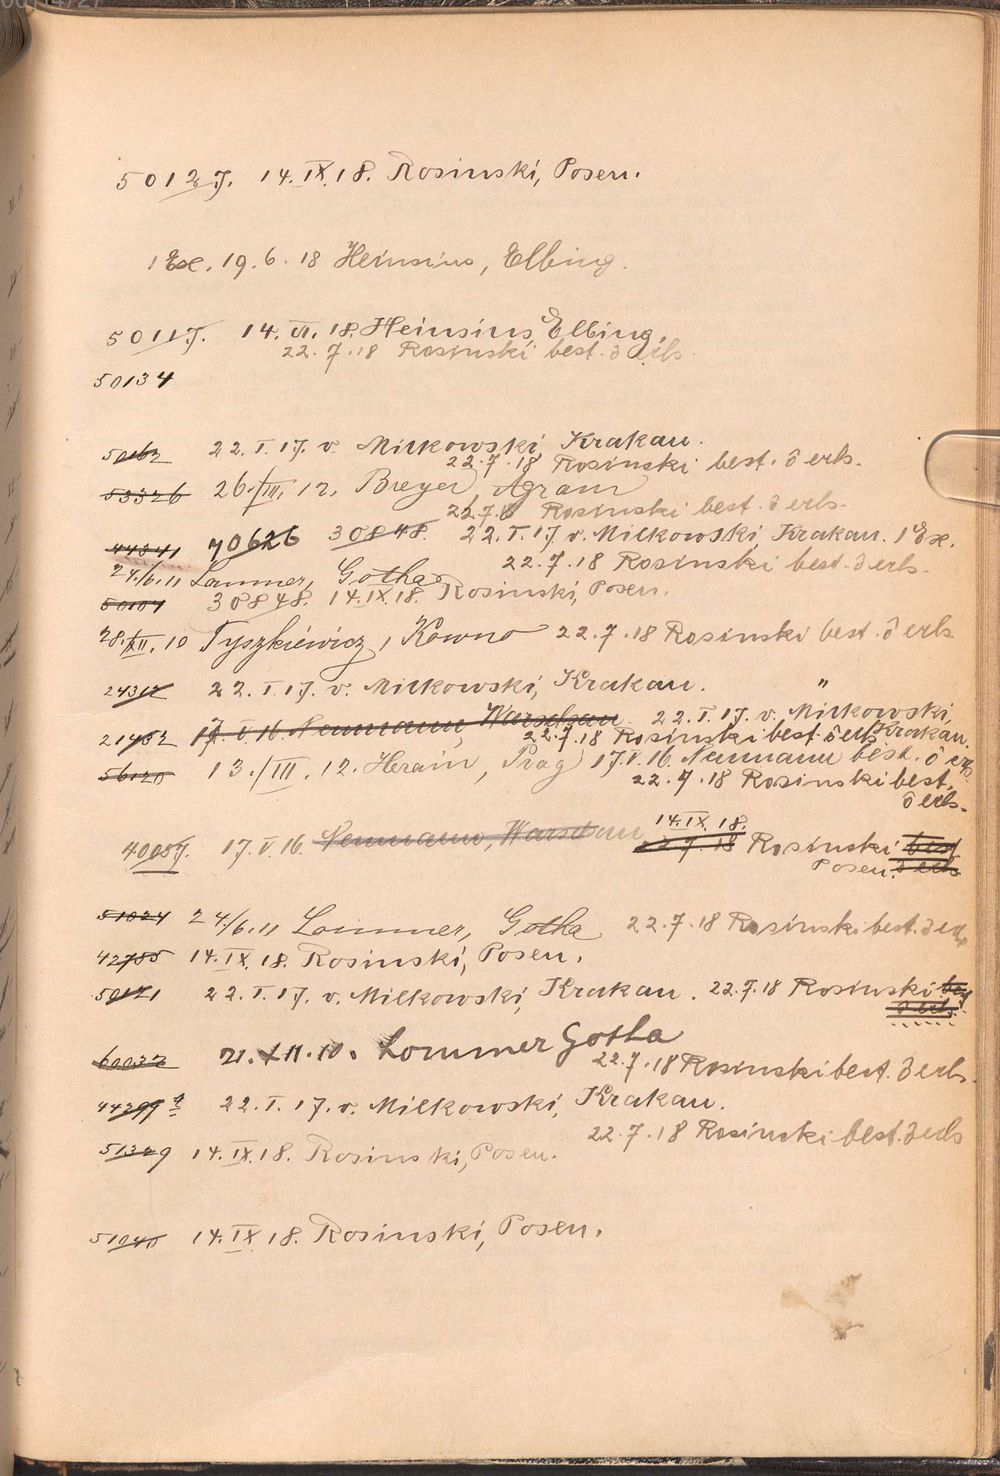 50127. 14.IX.18. Rosinski, Posen.
1 Ex. 19.6.18 Heinsius, Elbing.
50117. 14.VI.18. Heinsius, Elbing.
22.7.18 Rosinski best. ô erls.
50134
50162 22.I.17. v. Milkowski, Krakau.
22.7.18 Rosinski best. ô erls.
53326 26./III. 12. Breyer, Agram
22.7.18 Rosinski best. ô erls.
44841 70626 30848. 22.I.17. v. Milkowski, Krakau. 1 Ex.
22.7.18 Rosinski best. ô erls.
24./6.11 Lommer, Gotha
50104 30848. 14.IX.18. Rosinski, Posen.
28./XII.10 Tyszkiewicz, Kowno 22.7.18 Rosinski best. ô erls
24317 22.I.17. v. Milkowski, Krakau. "
21452 17.V.16 Neumann, Warschau. 22.I.17. v. Milkowski, Krakau.
22.7.18 Rosinski best. ô erls
56120 13./III. 12. Herain, Prag 17.V.16. Neumann best. ô erls.
22.7.18 Rosinski best.
ô erls.
14.IX.18.
40087. 17.V.16. Neumann, Warschau 22.7.18 Rosinski best
Posen. ô erls
51024 24/6.11 Lommer, Gotha 22.7.18 Rosinski best. ô erls
42785 14.IX.18. Rosinski, Posen.
50121 22.I.17. v. Milkowski, Krakau. 22.7.18 Rosinski best.
ô erls.
60032 21.XII.10. Lommer Gotha
22.7.18 Rosinski best. ô erls.
44299 a 22.I.17. v. Milkowski, Krakau.
22.7.18 Rosinski best. ô erls
51329 14.IX.18. Rosinski, Posen.
51040 14.IX.18. Rosinski, Posen.